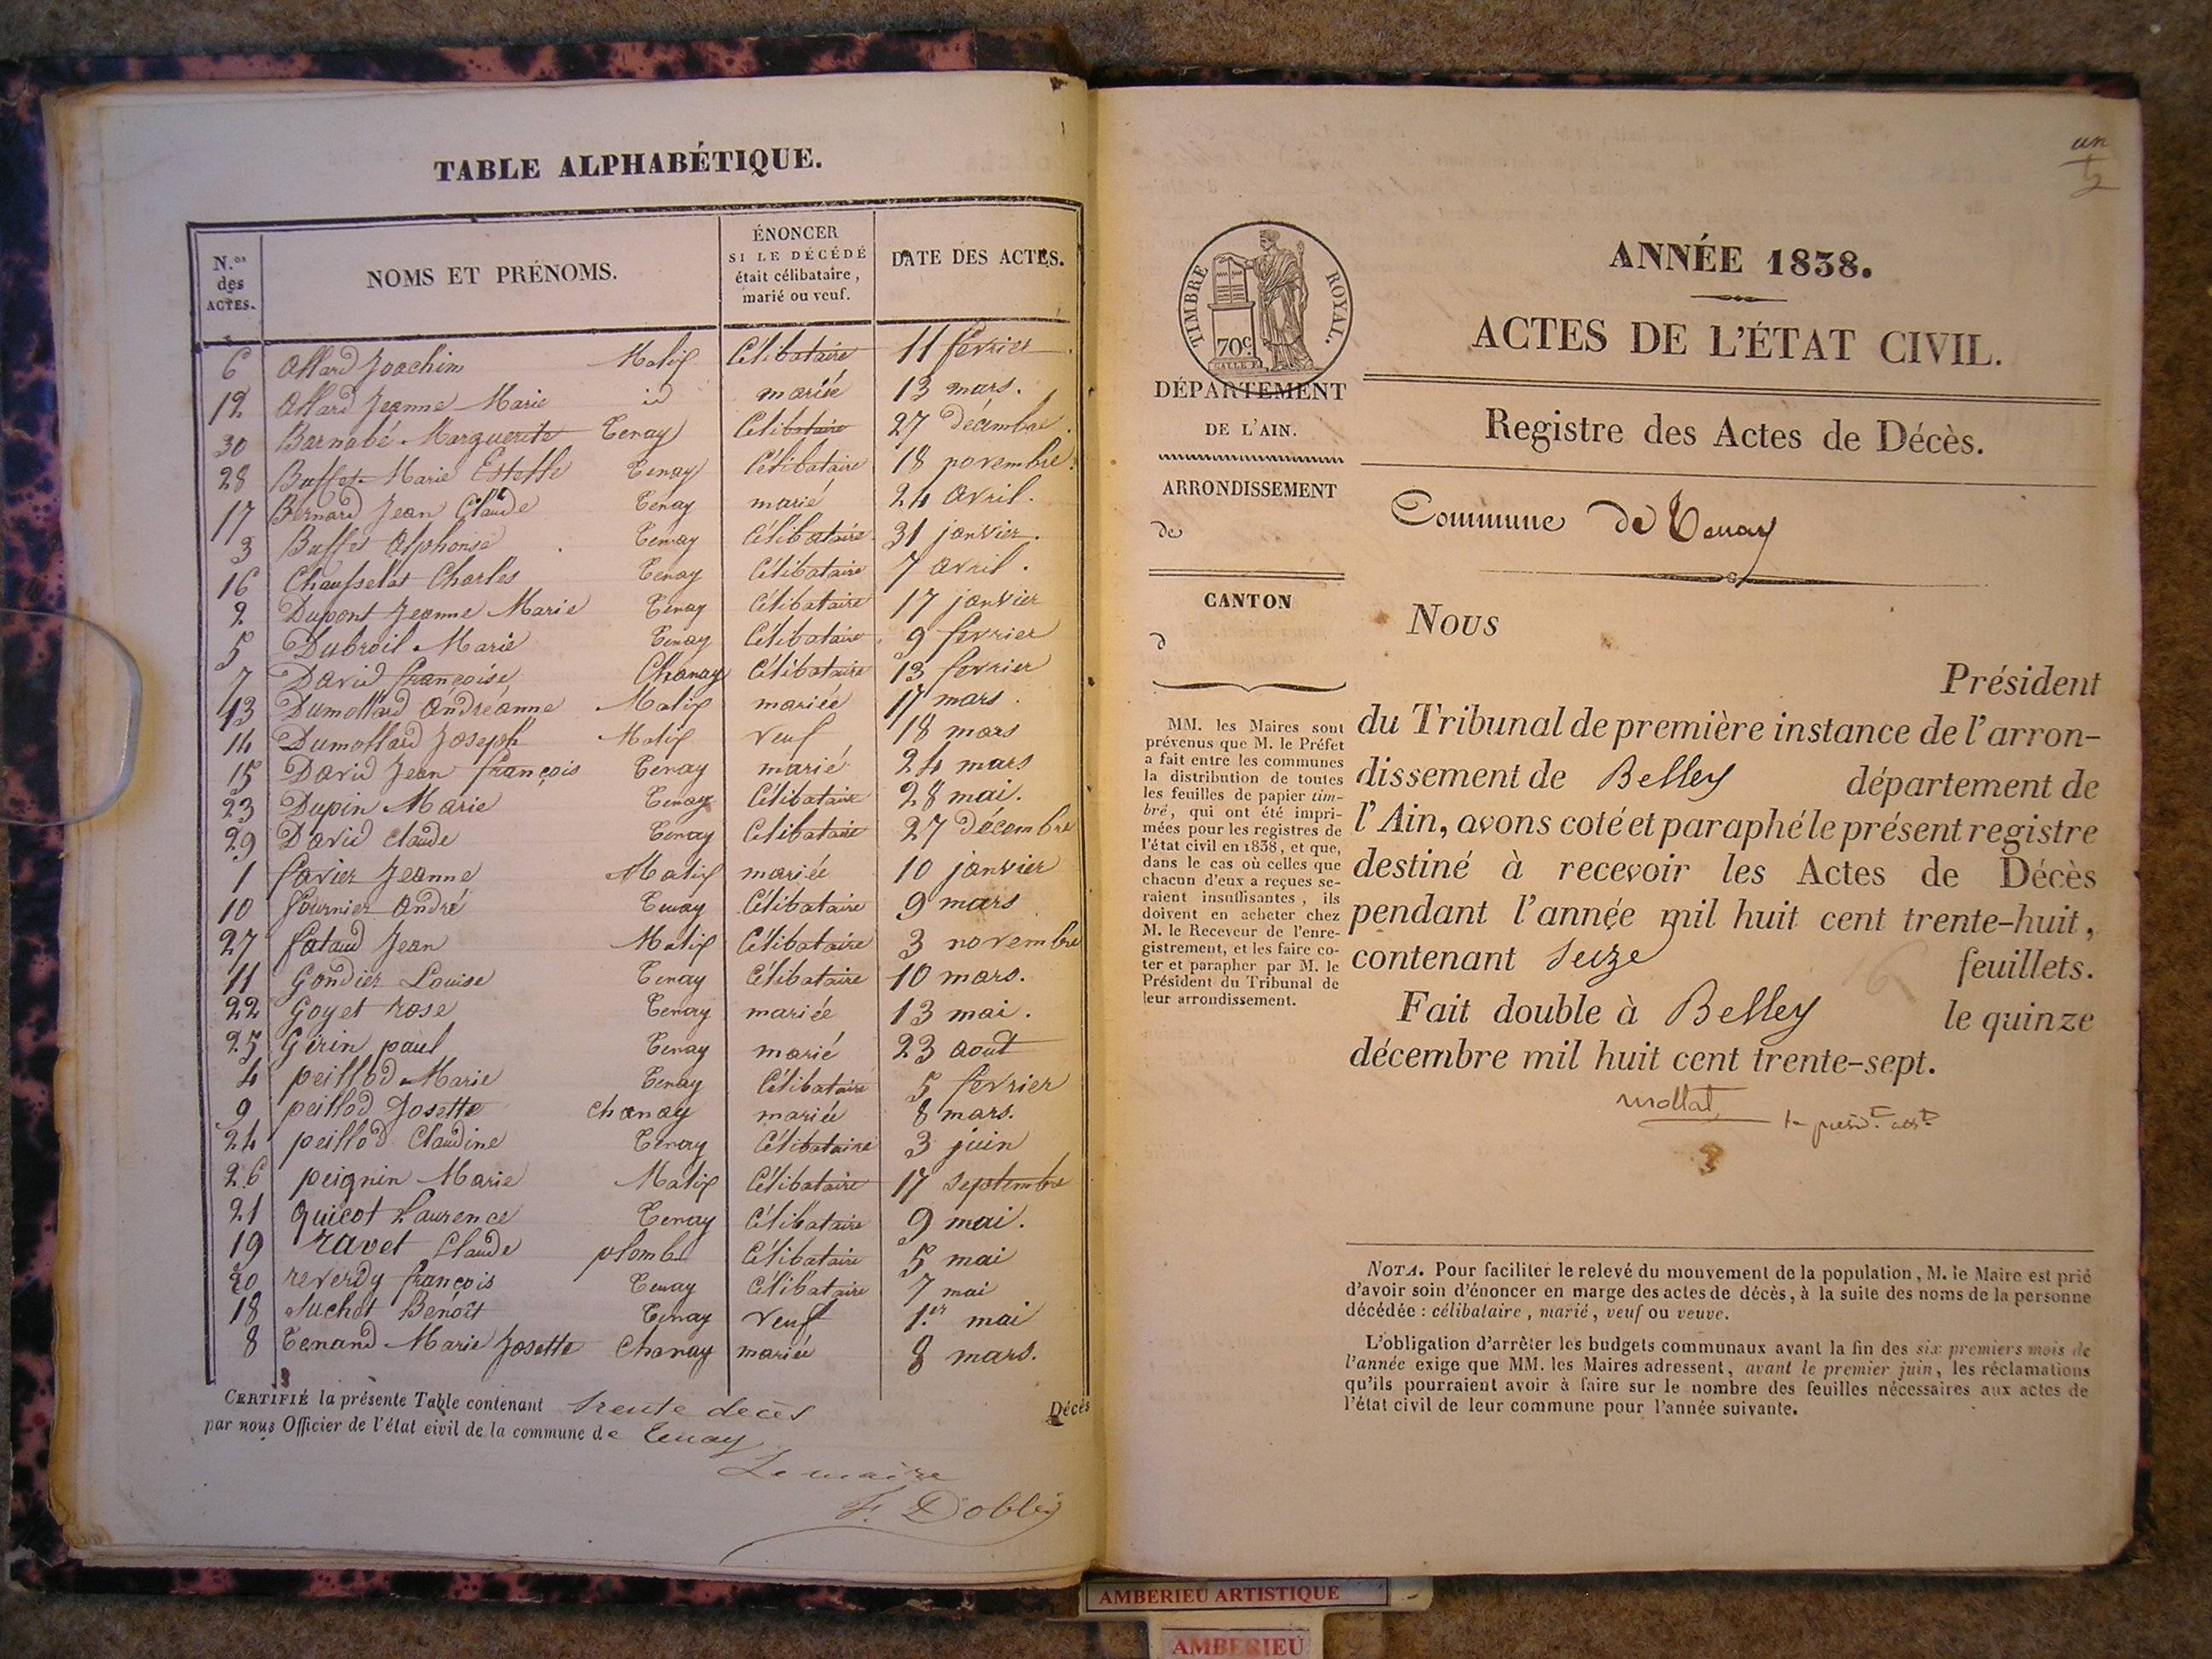 TABLE ALPHABÉTIQUE.
N.os des ACTES.
NOMS ET PRÉNOMS.
ÉNONCER SI LE DÉCÉDÉ était célibataire, marié ou veuf.
DATE DES ACTES.
6 Allard Joachim Malix Célibataire 11 février
12 Allard Jeanne Marie id mariée 13 mars.
30 Barnabé Marguerite Tenay Célibataire 27 décembre.
28 Buffet Marie Estelle Tenay Célibataire 18 novembre.
17 Bernard Jean Claude Tenay marié 24 avril.
3 Buffet Alphonse Tenay Célibataire 31 janvier.
16 Charles Tenay Célibataire 7 avril.
2 Dupont Jeanne Marie Tenay Célibataire 17 janvier
5 Dubreil Marie Tenay Célibataire 9 février
7 David françoise Chanay Célibataire 13 fevrier
13 Dumollard Andréanne Malix mariée 17 mars.
14 Dumollard Joseph Malix Veuf 18 mars
15 David Jean françois Tenay marié 24 mars
23 Dupin Marie Tenay Célibataire 28 mai.
29 David Claude Tenay Célibataire 27 décembre
1 favier Jeanne Malix mariée 10 janvier
10 Fournier André Tenay Célibataire 9 mars
27 fataud Jean Malix Célibataire 3 novembre
11 Gondier Louise Tenay Célibataire 10 mars.
22 Goyet rose Tenay mariée 13 mai.
25 Girin paul Tenay marié 23 août
4 peillod Marie Tenay Célibataire 5 février
9 peillod Josette Chanay mariée 8 mars.
24 peillod Claudine Tenay Célibataire 3 juin
26 peignin Marie Malix Célibataire 17 septembre
21 Quicot Laurence Tenay Célibataire 9 mai.
19 ravet Claude plomb Célibataire 5 mai
20 reverdy françois Tenay Célibataire 7 mai
18 Suchet Benoît Tenay Veuf 1.er mai
8 Tenand Marie Josette Chanay mariée 8 mars.
CERTIFIÉ la présente Table contenant trente décès Décès
par nous Officier de l'état civil de la commune de Tenay
Le maire
F. Dobley
un
ANNÉE 1838.
ACTES DE L'ÉTAT CIVIL.
Registre des Actes de Décès.
Commune de Tenay
TIMBRE ROYAL.
70c
DÉPARTEMENT
DE L'AIN.
ARRONDISSEMENT
de
CANTON
d
MM. les Maires sont
prévenus que M. le Préfet
a fait entre les communes
la distribution de toutes
les feuilles de papier tim-
bré, qui ont été impri-
mées pour les registres de
l'état civil en 1838, et que,
dans le cas où celles que
chacun d'eux a reçues se-
raient insuffisantes, ils
doivent en acheter chez
M. le Receveur de l'enre-
gistrement, et les faire co-
ter et parapher par M. le
Président du Tribunal de
leur arrondissement.
Nous
Président
du Tribunal de première instance de l'arron-
dissement de Belley département de
l'Ain, avons coté et paraphé le présent registre
destiné à recevoir les Actes de Décès
pendant l'année mil huit cent trente-huit,
contenant seize feuillets.
Fait double à Belley le quinze
décembre mil huit cent trente-sept.
mollat
NOTA. Pour faciliter le relevé du mouvement de la population, M. le Maire est prié
d'avoir soin d'énoncer en marge des actes de décès, à la suite des noms de la personne
décédée : célibataire, marié, veuf ou veuve.
L'obligation d'arrêter les budgets communaux avant la fin des six premiers mois de
l'année exige que MM. les Maires adressent, avant le premier juin, les réclamations
qu'ils pourraient avoir à faire sur le nombre des feuilles nécessaires aux actes de
l'état civil de leur commune pour l'année suivante.
AMBERIEU ARTISTIQUE
AMBERIEU